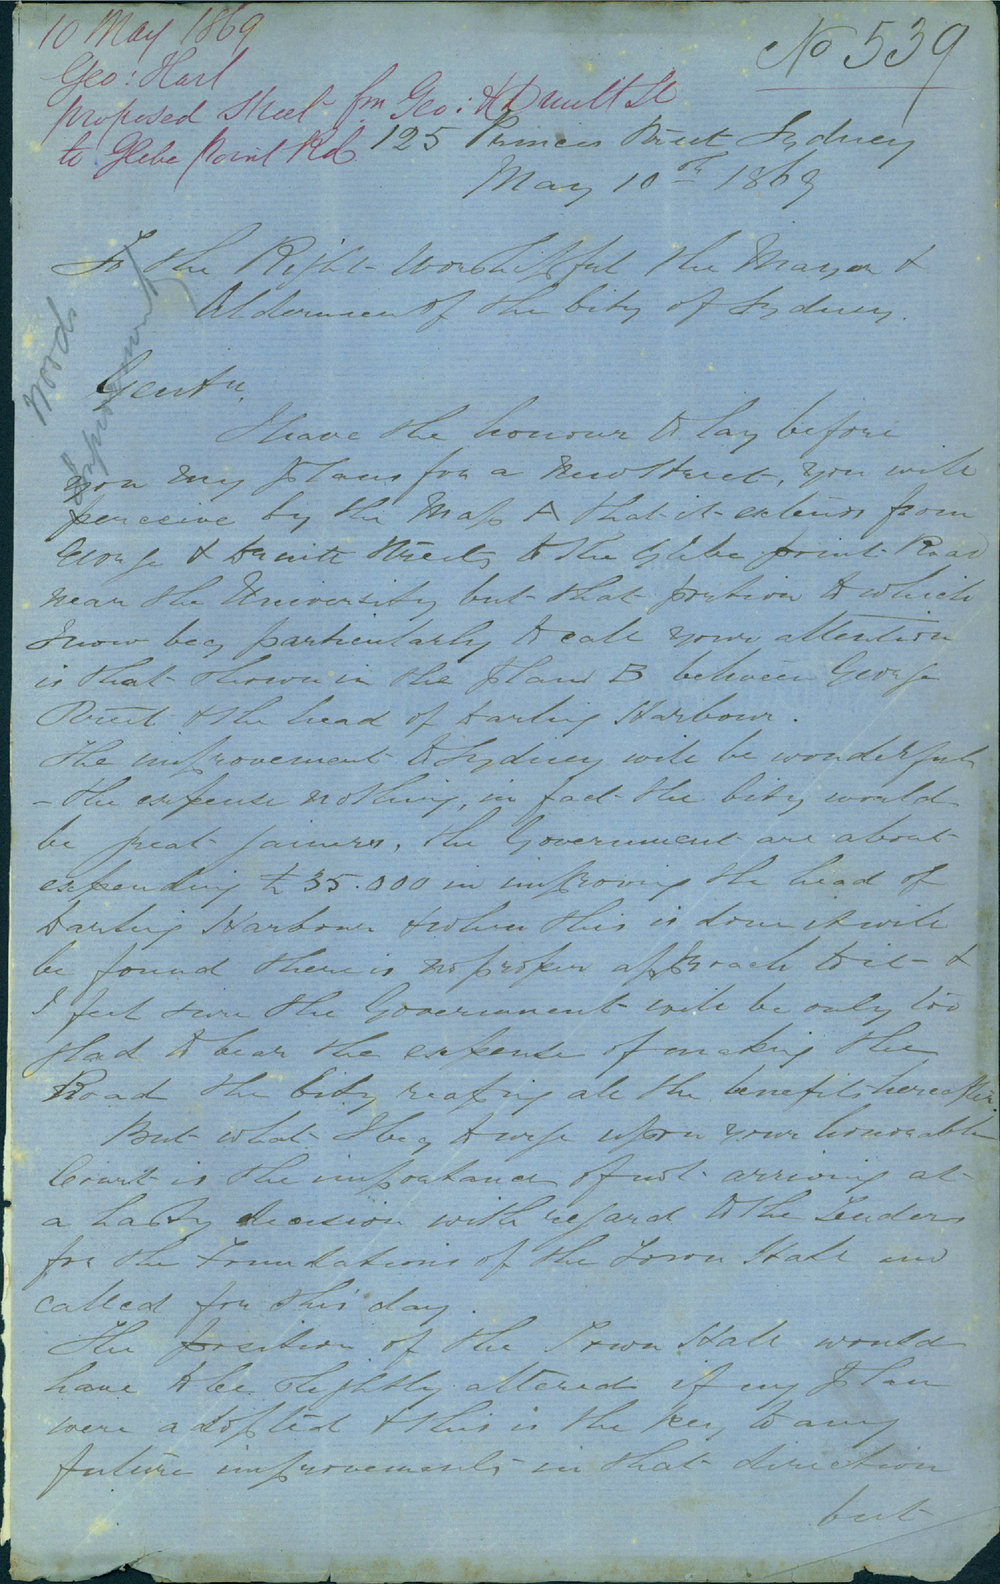 10 May 1869
Geo: Hart
proposed Street fm Geo: & Druitt St
to Glebe Point Rd
No 539
125 Princes Street Sydney
May 10th 1869
To the Right Worshipful the Mayor &
Aldermen of the City of Sydney.
Woods
Improvements
Gentn.
I have the honour to lay before
you my plans for a New Street, you will
perceive by the Map A that it extends from
George & Druitt Streets to the Glebe point Road
near the University but that portion to which
I now beg particularly to call your attention
is that shown in the plan B between George
Street & the head of Darling Harbour.
The improvement to Sydney will be wonderful
- the expense nothing, in fact the City would
be great gainers, the Government are about
expending £35.000 in improving the head of
Darling Harbour & when this is done it will
be found there is no proper approach to it &
I feel sure the Government will be only too
glad to bear the expense of making the
Road the City reaping all the benefits hereafter.
But what I beg to urge upon your honorable
Court is the importance of not arriving at
a hasty decision with regard to the Tenders
for the Foundations of the Town Hall
called for this day.
The position of the Town Hall would
have to be slightly altered if my plan
were adopted & this is the key to any
future improvements in that direction
but